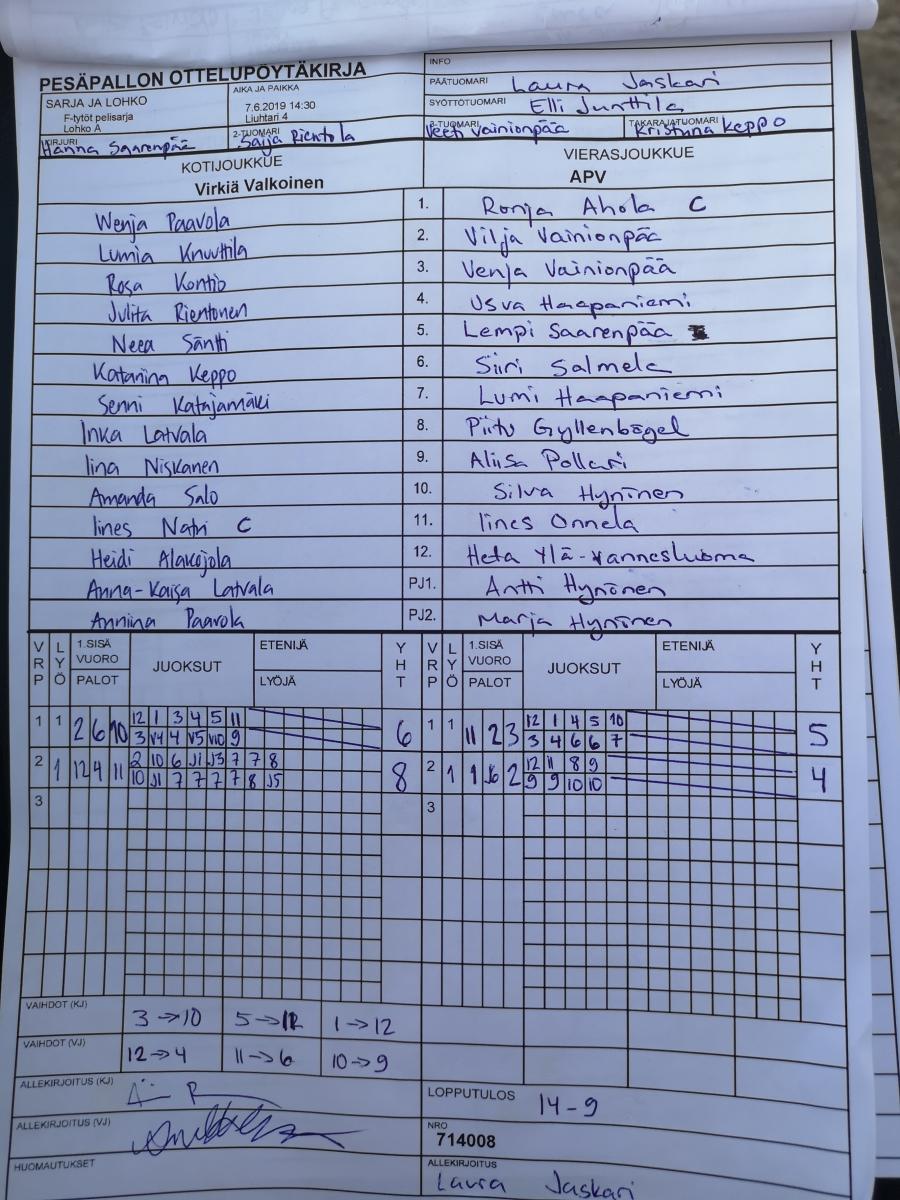 PESÄPALLON OTTELUPÖYTÄKIRJA
INFO
SARJA JA LOHKO
F-tytöt pelisarja
Lohko A
AIKA JA PAIKKA
7.6.2019 14:30
Liuhtari 4
PÄÄTUOMARI Laura Jaskari
SYÖTTÖTUOMARI Elli Junttila
KIRJURI Hanna Saarenpää
2-TUOMARI Saija Rientola
3-TUOMARI Veeti Vainionpää
TAKARAJATUOMARI Kristiina Keppo
KOTIJOUKKUE
Virkiä Valkoinen
VIERASJOUKKUE
APV
Wenja Paavola 1. Ronja Ahola C
Lumia Knuuttila 2. Vilja Vainionpää
Rosa Kontio 3. Venja Vainionpää
Julita Rientonen 4. Usva Haapaniemi
Neea Säntti 5. Lempi Saarenpää
Katariina Keppo 6. Siiri Salmela
Senni Katajamäki 7. Lumi Haapaniemi
Inka Latvala 8. Piitu Gyllenbögel
Iina Niskanen 9. Aliisa Pollari
Amanda Salo 10. Silva Hyninen
Iines Natri C 11. Iines Onnela
Heidi Alakojola 12. Heta Ylä-Vannesluoma
Anna-Kaisa Latvala PJ1. Antti Hynönen
Annina Paavola PJ2. Marja Hyninen
VRP LYÖ 1.SISÄ VUORO PALOT JUOKSUT ETENIJÄ LYÖJÄ YHT VRP LYÖ 1.SISÄ VUORO PALOT JUOKSUT ETENIJÄ LYÖJÄ YHT
1 1 2 6 10 12 1 3 4 5 11 6 1 1 11 2 3 12 1 4 5 10 5
3 V4 4 V5 V10 9 3 4 6 6 7
2 1 12 4 11 2 10 6 J1 J3 7 7 8 8 2 1 1 J6 2 12 11 8 9 4
10 J1 7 7 7 7 8 J5 9 9 10 10
3 3
VAIHDOT (KJ) 3→10 5→12 1→12
VAIHDOT (VJ) 12→4 11→6 10→9
ALLEKIRJOITUS (KJ)
LOPPUTULOS 14-9
ALLEKIRJOITUS (VJ)
NRO
714008
HUOMAUTUKSET
ALLEKIRJOITUS
Laura Jaskari